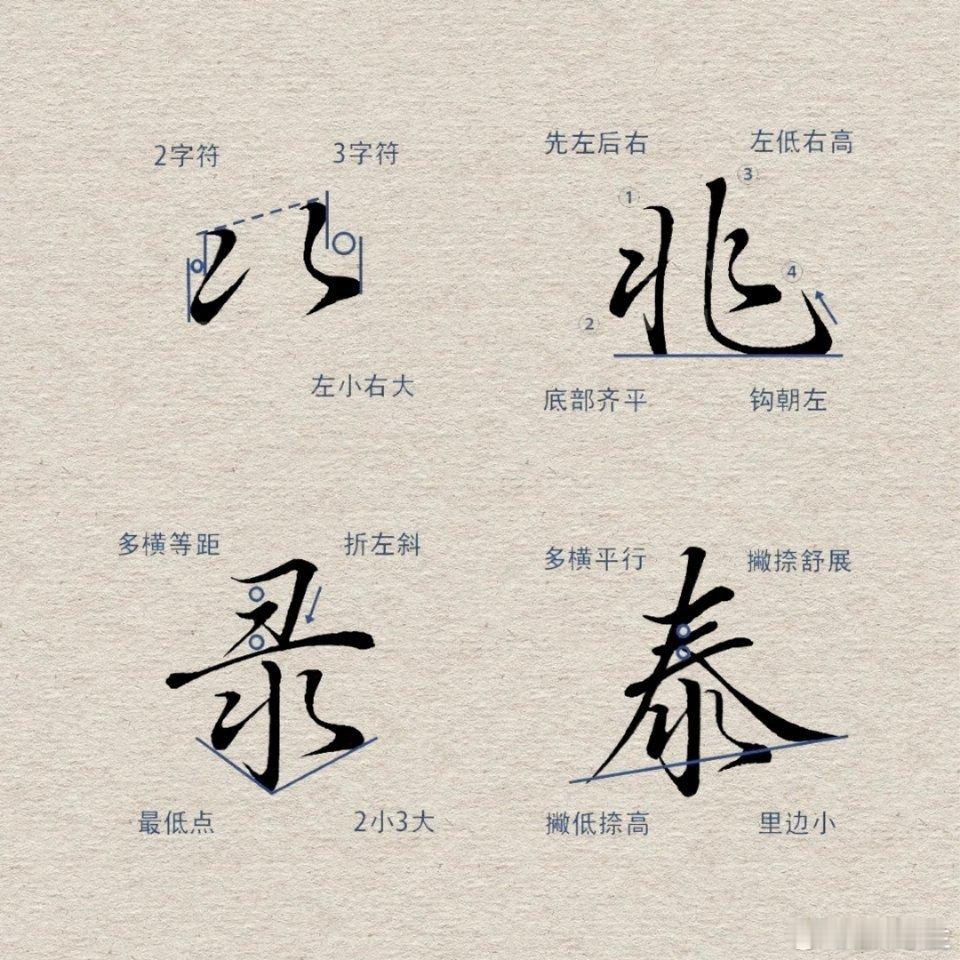 2字符 3字符
左小右大
先左后右 左低右高
1
3
兆
4
2
底部齐平 钩朝左
多横等距 折左斜
录
最低点 2小3大
多横平行 撇捺舒展
泰
撇低捺高 里边小